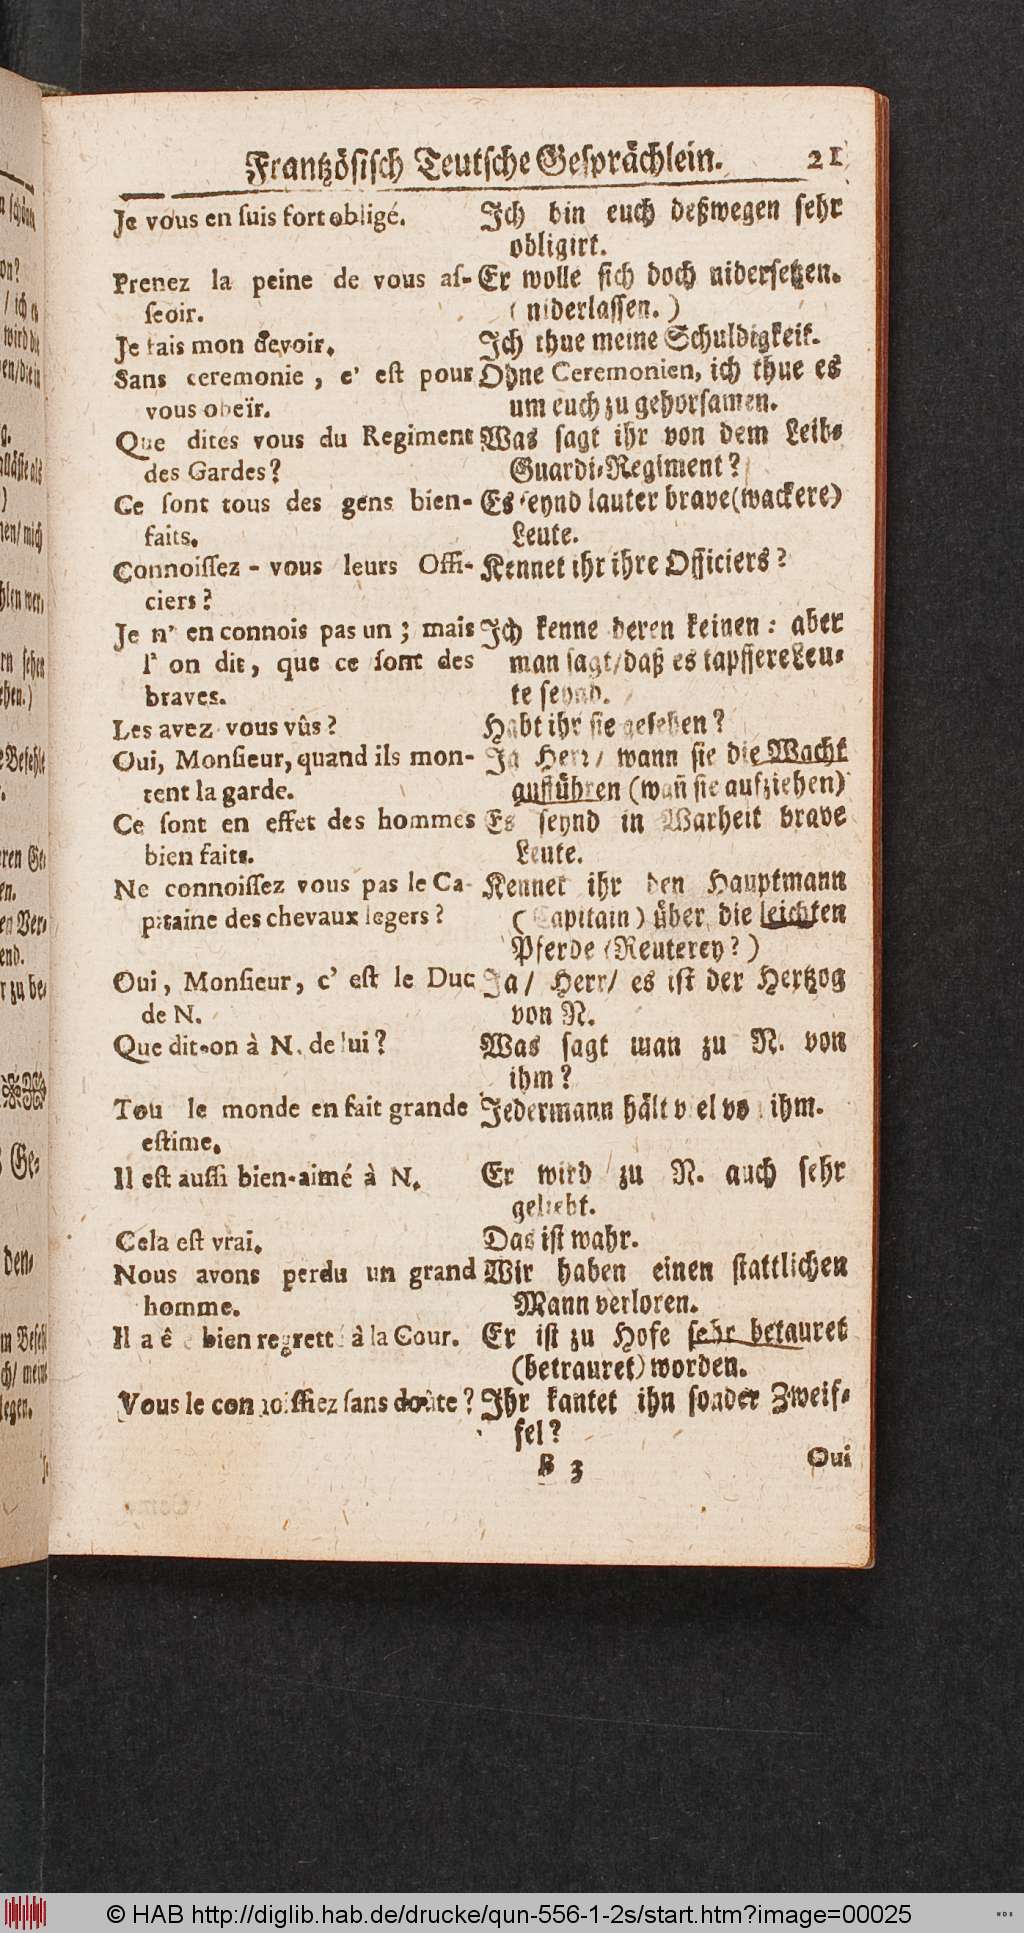 Frantzösisch Teutsche Gesprächlein. 21
Je vous en suis fort obligé.
Prenez la peine de vous as-
seoir.
Je fais mon devoir.
Sans ceremonie, c' est pour
vous obeïr.
Que dites vous du Regiment
des Gardes?
Ce sont tous des gens bien-
faits.
Connoissez-vous leurs Offi-
ciers?
Je n' en connois pas un; mais
l' on dit, que ce sont des
braves.
Les avez vous vûs?
Oui, Monsieur, quand ils mon-
tent la garde.
Ce sont en effet des hommes
bien faits.
Ne connoissez vous pas le Ca-
pitaine des chevaux legers?
Oui, Monsieur, c' est le Duc
de N.
Que dit-on à N. de lui?
Tou le monde en fait grande
estime.
Il est aussi bien-aimé à N.
Cela est vrai.
Nous avons perdu un grand
homme.
Il a ê bien regrett à la Cour.
Vous le connoissiez sans doute?
Ich bin euch deßwegen sehr
obligirt.
Er wolle sich doch nidersetzen.
(niderlassen.)
Ich thue meine Schuldigkeit.
Ohne Ceremonien, ich thue es
um euch zu gehorsamen.
Was sagt ihr von dem Leib-
Guardi-Regiment?
Es seynd lauter brave (wackere)
Leute.
Kennet ihr ihre Officiers?
Ich kenne deren keinen: aber
man sagt/ daß es tapffere Leu-
te seynd.
Habt ihr sie gesehen?
Ja Herr/ wann sie die Wacht
aufführen (wañ sie aufziehen)
Es seynd in Warheit brave
Leute.
Kennet ihr den Hauptmann
(Capitain) über die leichten
Pferde (Reuterey?)
Ja/ Herr/ es ist der Hertzog
von N.
Was sagt man zu N. von
ihm?
Jedermann hält viel von ihm.
Er wird zu N. auch sehr
geliebt.
Das ist wahr.
Wir haben einen stattlichen
Mann verloren.
Er ist zu Hofe sehr betauret
(betrauret) worden.
Ihr kantet ihn sonder Zweif-
fel?
B 3 Oui
© HAB http://diglib.hab.de/drucke/qun-556-1-2s/start.htm?image=00025